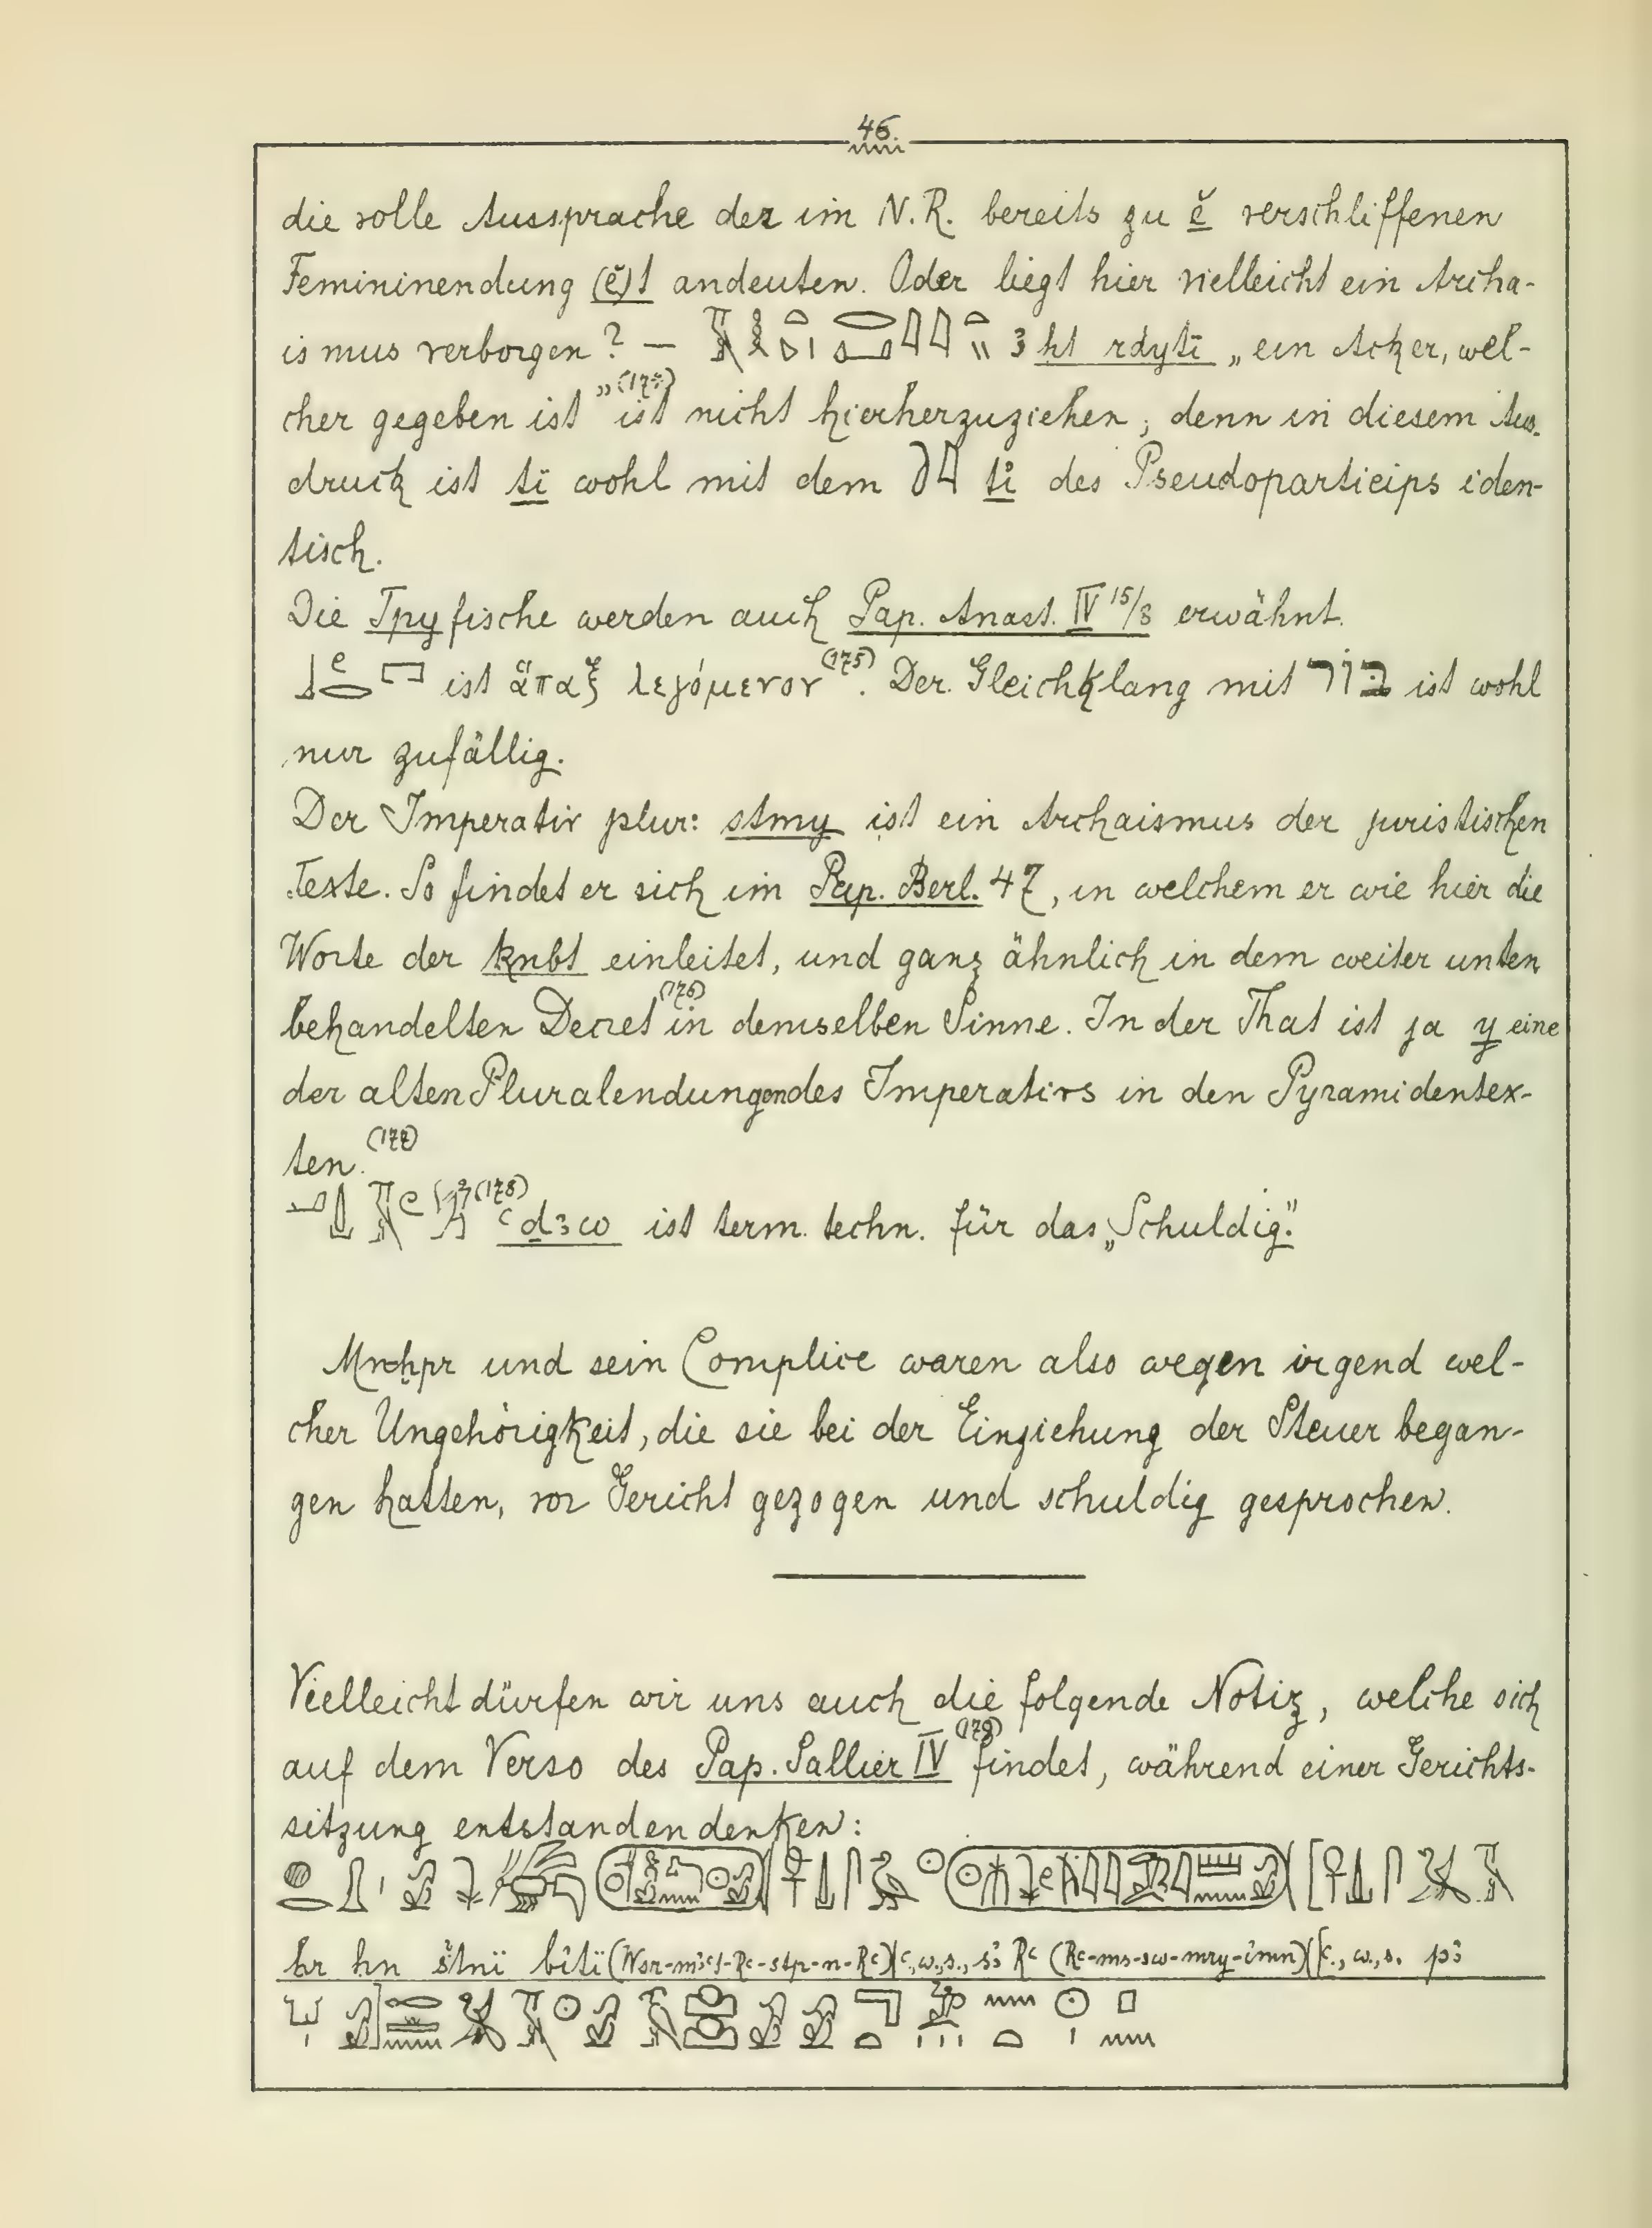 46.
die volle Aussprache der im N.R. bereits zu ĕ verschliffenen
Femininendung (ĕ)t andeuten. Oder liegt hier vielleicht ein Archa-
ismus verborgen? — 3ht rdytï „ein Acker, wel-
cher gegeben ist" ist nicht hierherzuziehen, denn in diesem Aus-
druck ist tï wohl mit dem ti des Pseudoparticips iden-
tisch.
Die Tpyfische werden auch Pap. Anast. IV 15/8 erwähnt.
ist ἅπαξ λεγόμενον (175). Der Gleichklang mit בּוֹר ist wohl
nur zufällig.
Der Imperativ plur: stmy ist ein Archaismus der juristischen
Texte. So findet er sich im Pap. Berl. 47, in welchem er wie hier die
Worte der knbt einleitet, und ganz ähnlich in dem weiter unten
behandelten Decret (176) in demselben Sinne. In der That ist ja y eine
der alten Pluralendungen des Imperativs in den Pyramidentex-
ten.
(178) ꜥd3w ist term. techn. für das „Schuldig".
und sein Complice waren also wegen irgend wel-
cher Ungehörigkeit, die sie bei der Einziehung der Steuer began-
gen hatten, vor Gericht gezogen und schuldig gesprochen.
Vielleicht dürfen wir uns auch die folgende Notiz, welche sich
auf dem Verso des Pap. Sallier IV (179) findet, während einer Gerichts-
sitzung entstanden denken:
hr hn štnï bïtï (Wsr-m3ꜥt-Rꜥ-stp-n-Rꜥ)|ꜥ.,w.,s., s3 Rꜥ (Rꜥ-ms-sw-mry-imn)|[ꜥ., w.,s. p3